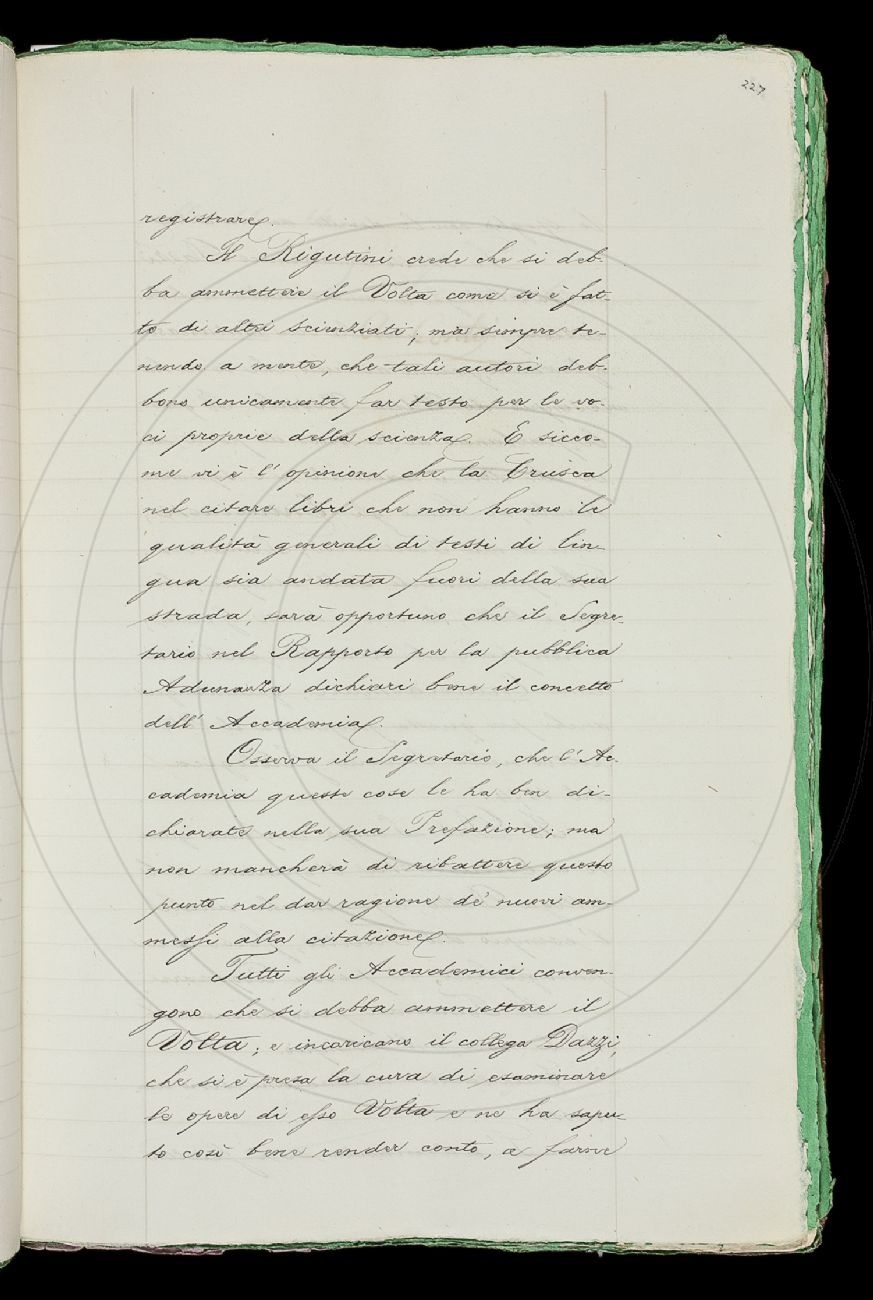 227
registrare.
Il Rigutini crede che si deb-
ba ammettere il Volta come si è fat-
to di altri scienziati; ma sempre te-
nendo a mente, che tali autori deb-
bono unicamente far testo per le vo-
ci proprie della scienza. E sicco-
me vi è l'opinione che la Crusca
nel citare libri che non hanno le
qualità generali di testi di lin-
gua sia andata fuori della sua
strada, sarà opportuno che il Segre-
tario nel Rapporto per la pubblica
Adunanza dichiari bene il concetto
dell'Accademia.
Osserva il Segretario, che l'Ac-
cademia queste cose le ha ben di-
chiarate nella sua Prefazione; ma
non mancherà di ribattere questo
punto nel dar ragione de' nuovi am-
messi alla citazione.
Tutti gli Accademici conven-
gono che si debba ammettere il
Volta; e incaricano il collega Dazzi,
che si è presa la cura di esaminare
le opere di esso Volta e ne ha sapu-
to così bene render conto, a farne